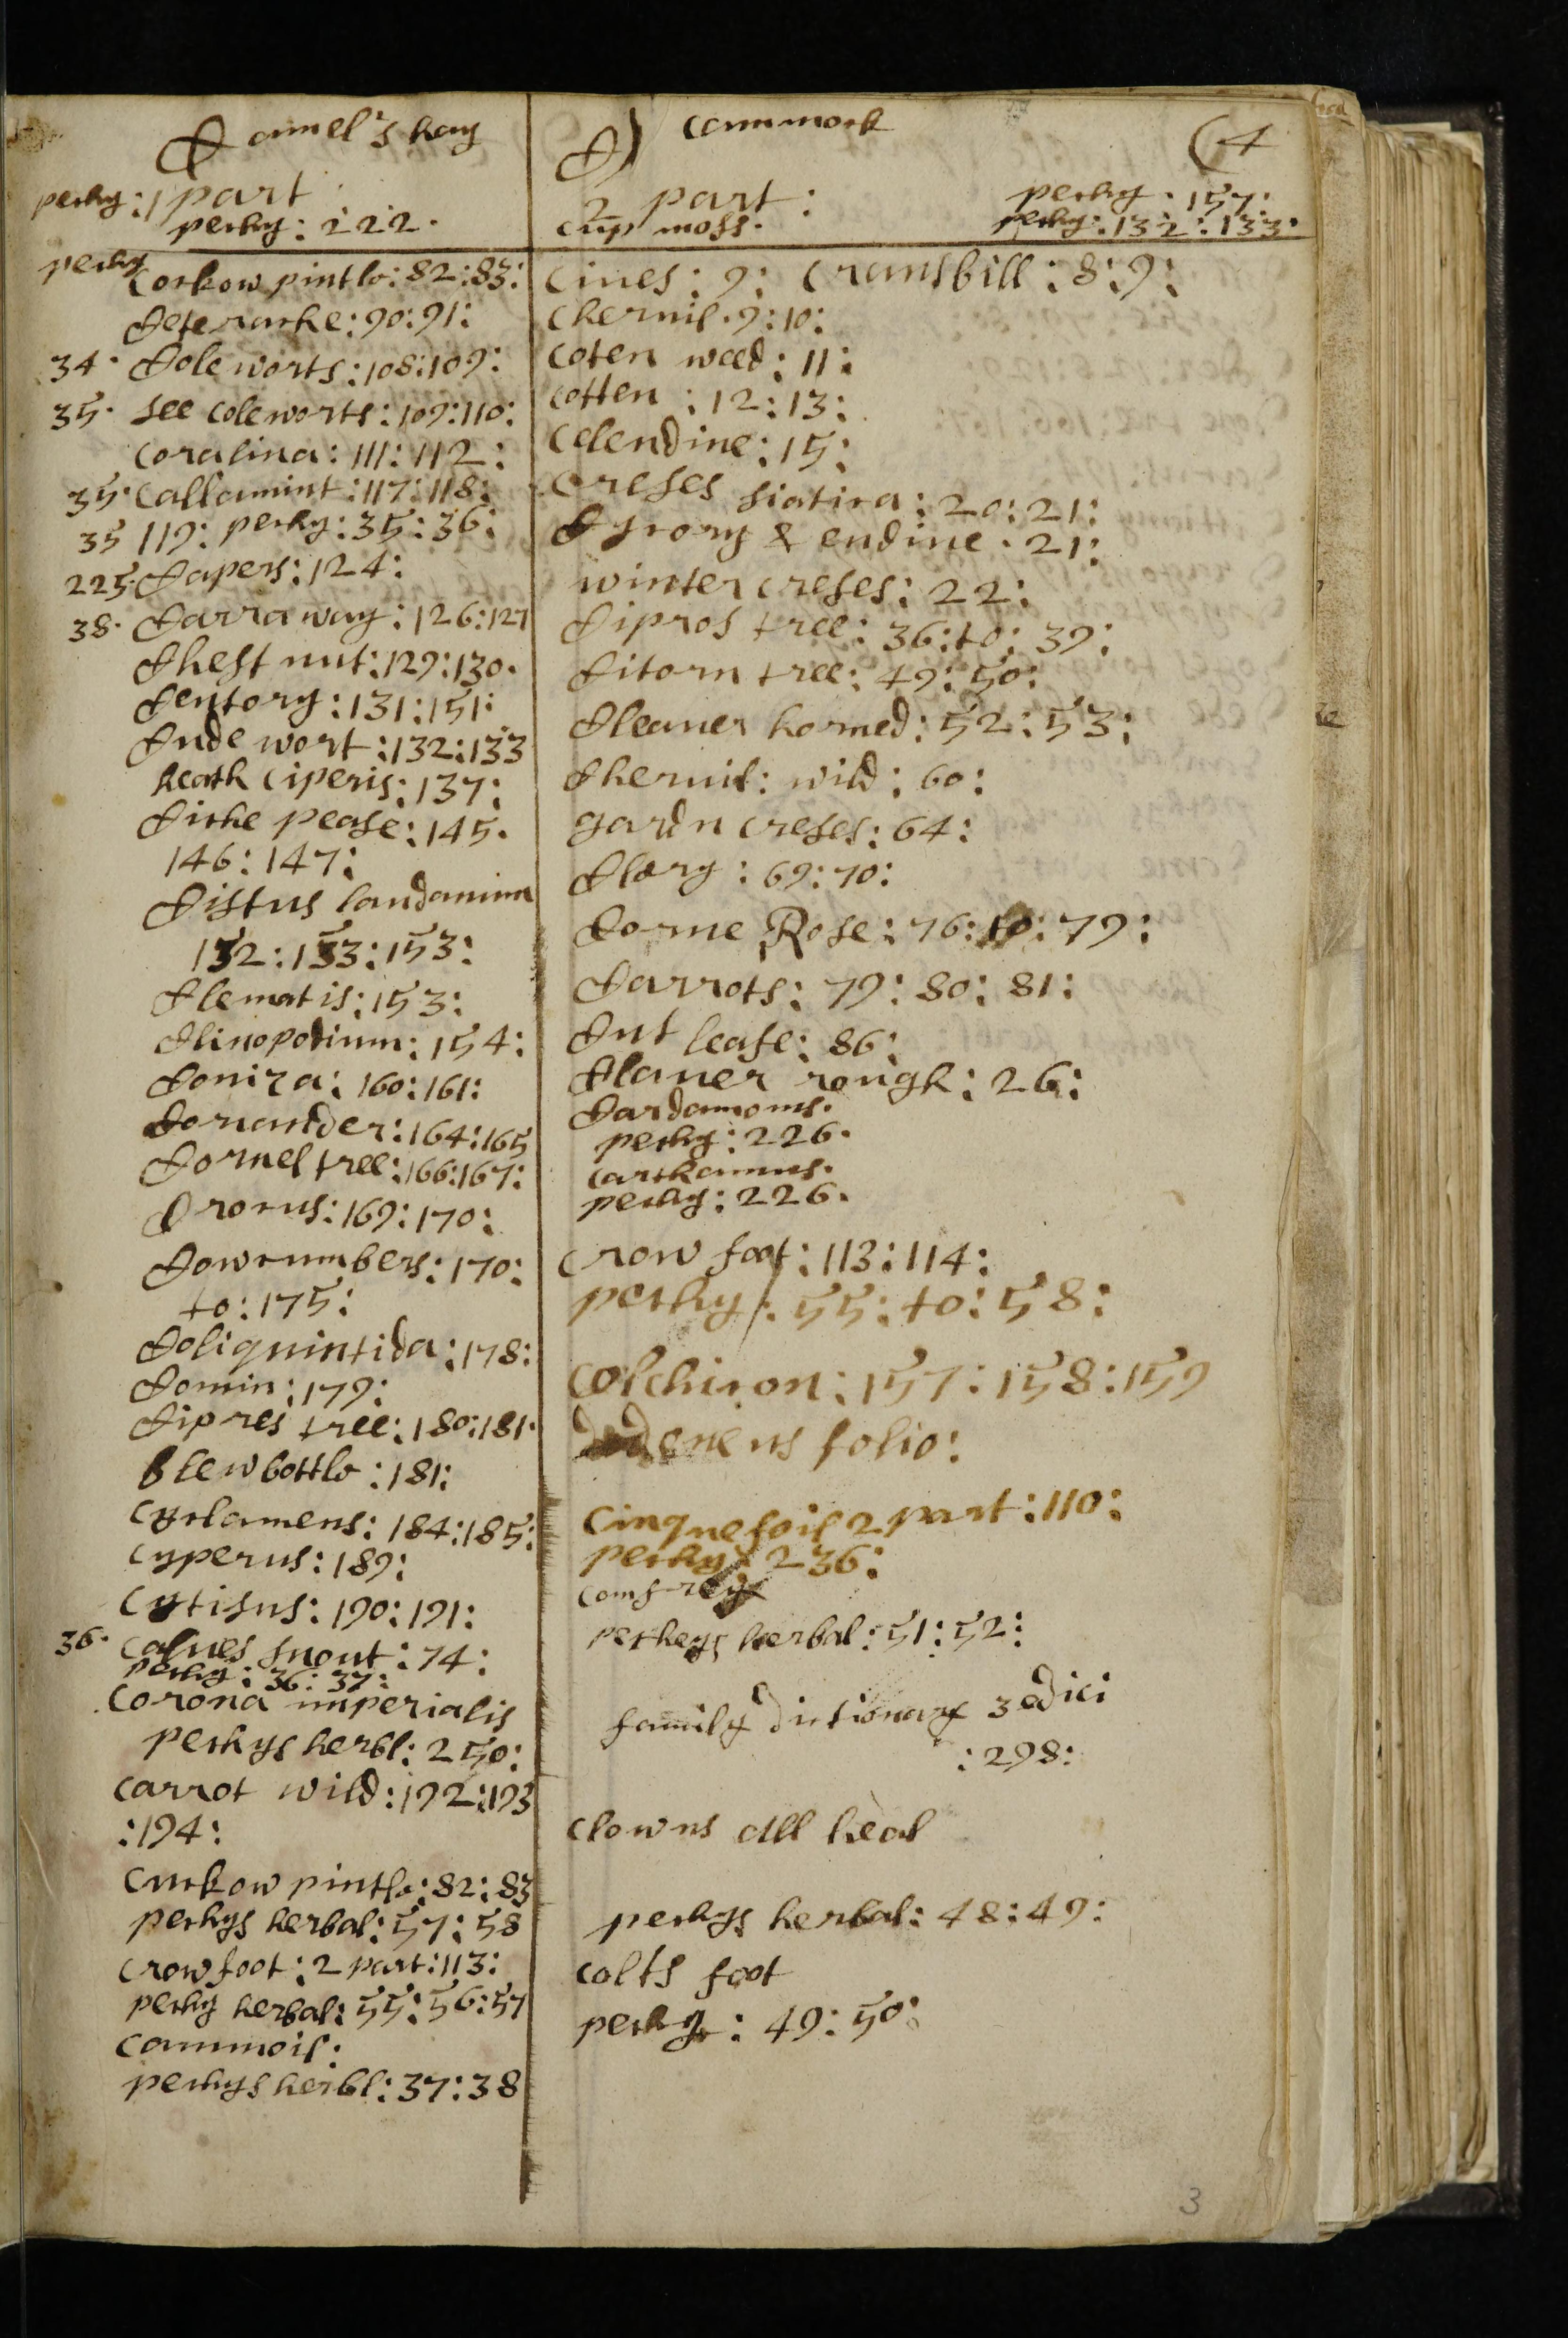 Camel's hay
pechy: 1 part
pechy: 222.
pechy Cockow pintle: 82:83:
Ceterache: 90:91:
34. Coleworts: 108:109:
35. See coleworts: 109:110:
Coralina: 111:112:
35. Callamint: 117:118:
35 119: pechy: 35:36:
225. Capers: 124:
38. Carraway: 126:127
Chest nut: 129:130.
Centory: 131:151:
Cudewort: 132:133
heath Ciperis: 137:
Ciche pease: 145.
146:147:
Cistus landanum
152:153:153:
Clematis: 153:
Clinopodium: 154:
Coniza: 160:161:
Coriander: 164:165
Cornel tree: 166:167:
Crocus: 169:170:
Cowcumbers: 170:
to: 175:
Coliquintida: 178:
Comin: 179:
Cipres tree: 180:181.
blew bottle: 181:
Cyclamens: 184:185:
Cyperus: 189:
Cytisus: 190:191:
36. Calves snout: 74:
pechy: 36:37:
Corona imperialis
pechys herbl: 250:
Carrot wild: 192:193
:194:
Cuckow pintle: 82:83
pechys herbal: 57:58
Crowfoot: 2 part: 113:
pechy herbal: 55:56:57
Cammoil:
pechys herbl: 37:38
C) Cammock (4
2 part: pechy. 157:
Cup moss. pechy: 132:133.
Cives: 9: Cransbill: 8:9:
Chervil. 9:10:
Coten weed: 11:
Cotten: 12:13:
Celendine: 15:
Creses siatica: 20:21:
Cycory & endive. 21:
winter Creses: 22:
Cipros tree: 36:to:39:
Citorn tree: 49:50:
Cleaver horned: 52:53:
Chervil: wild: 60:
gardn Creses: 64:
Clary: 69:70:
Corne Rose: 76:to:79:
Carrots: 79:80:81:
Cut leafe: 86:
Claver rough: 26:
Cardamoms.
pechy: 226.
Carthamus.
pechy: 226.
Crow foot: 113:114:
pechy: 55:to:58:
Colchicon: 157:158:159
folio:
Cinquefoil 2 part: 110:
pechy: 236:
Comfrey
pecheys herbal: 51:52:
family dictionary 3 edici
:298:
Clowns all heal
pechys herbal: 48:49:
Colts foot
pechy: 49:50:
3